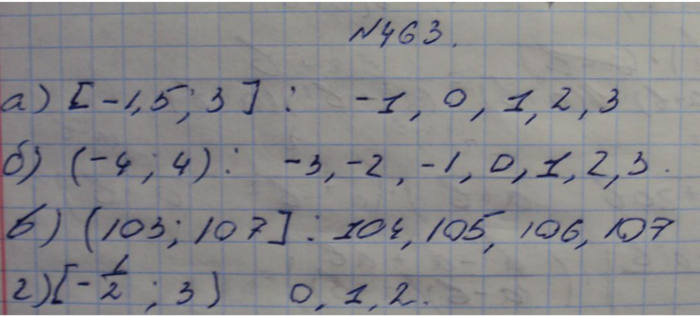 №463.
а) [-1,5; 3]: -1, 0, 1, 2, 3
б) (-4; 4): -3, -2, -1, 0, 1, 2, 3.
в) (103; 107]: 104, 105, 106, 107
г) [-1/2; 3) 0, 1, 2.